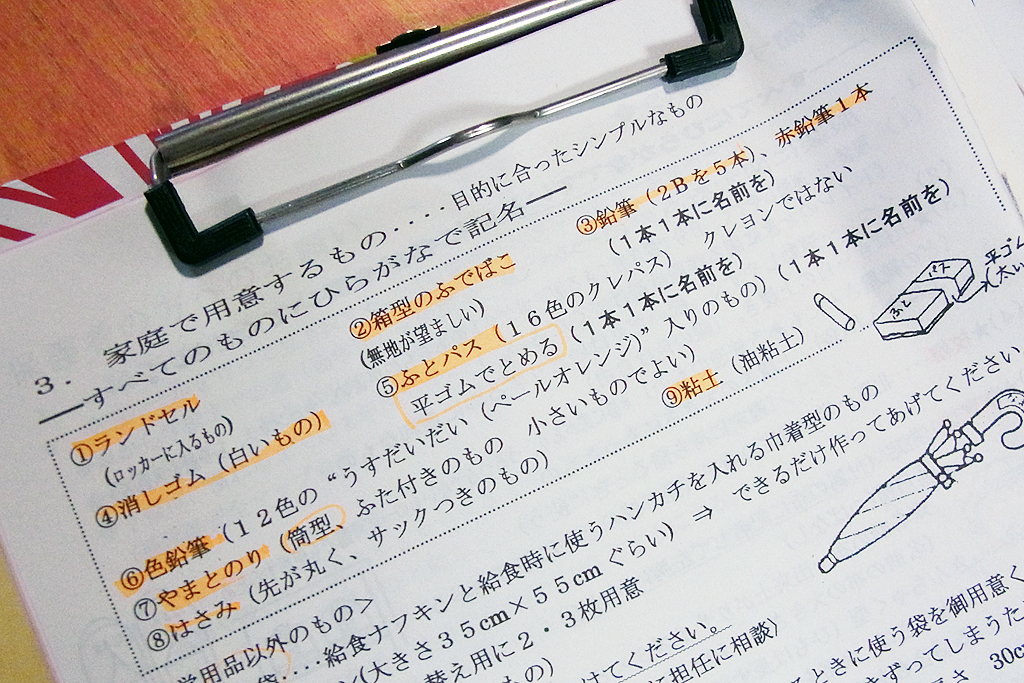 3．家庭で用意するもの‥‥目的に合ったシンプルなもの
―すべてのものにひらがなで記名―
①ランドセル
(ロッカーに入るもの)
②箱型のふでばこ
(無地が望ましい)
③鉛筆（２Ｂを５本）、赤鉛筆１本
（１本１本に名前を）
④消しゴム（白いもの）
⑤ふとパス（１６色のクレパス）　クレヨンではない
平ゴムでとめる（１本１本に名前を）
⑥色鉛筆（１２色の“うすだいだい（ペールオレンジ）”入りのもの）（１本１本に名前を）
⑦やまとのり（筒型、ふた付きのもの　小さいものでよい）
⑧はさみ（先が丸く、サックつきのもの）
⑨粘土（油粘土）
ふと
パス
平ゴム
用品以外のもの＞
‥‥給食ナフキンと給食時に使うハンカチを入れる巾着型のもの
(大きさ３５cm×５５cmぐらい)　⇒　できるだけ作ってあげてください
替え用に２・３枚用意
もの)
けてください。
に担任に相談)
ときに使う袋を御用意く
ずってしまうた
30c